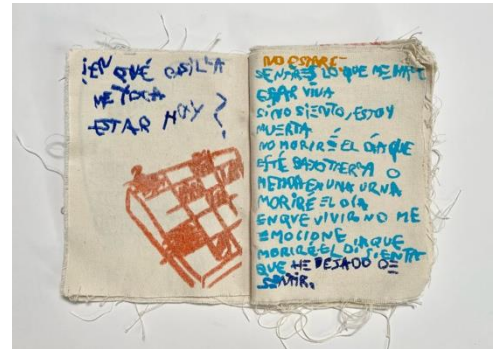 ¿EN QUÉ CASILLA
ME TOCA
ESTAR HOY?
NO ESTARÉ
SENTIRÉ LO QUE ME HACE
ESTAR VIVA
SI NO SIENTO, ESTOY
MUERTA
NO MORIRÉ EL DÍA QUE
ESTÉ BAJO TIERRA O
METIDA EN UNA URNA
MORIRÉ EL DÍA
EN QUE VIVIR NO ME
EMOCIONE
MORIRÉ EL DÍA QUE SIENTA
QUE HE DEJADO DE
SENTIR.